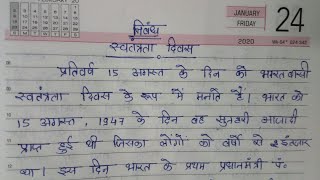 FEBRUARY 20
JANUARY
FRIDAY
24
2020
निबंध
स्वतंत्रता दिवस
प्रतिवर्ष 15 अगस्त के दिन को भारतवासी
स्वतंत्रता दिवस के रूप में मनाते हैं। भारत को
15 अगस्त, 1947 के दिन वह सुनहरी आजादी
प्राप्त हुई थी जिसका लोगों को वर्षों से इंतजार
था। इस दिन भारत के प्रथम प्रधानमंत्री पं.